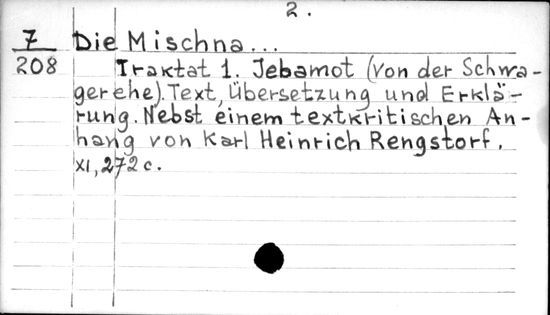 2.
7 Die Mischna...
208 Traktat 1. Jebamot (Von der Schwa-
gerehe). Text, Übersetzung und Erklä-
rung. Nebst einem textkritischen An-
hang von Karl Heinrich Rengstorf.
XI, 272 c.